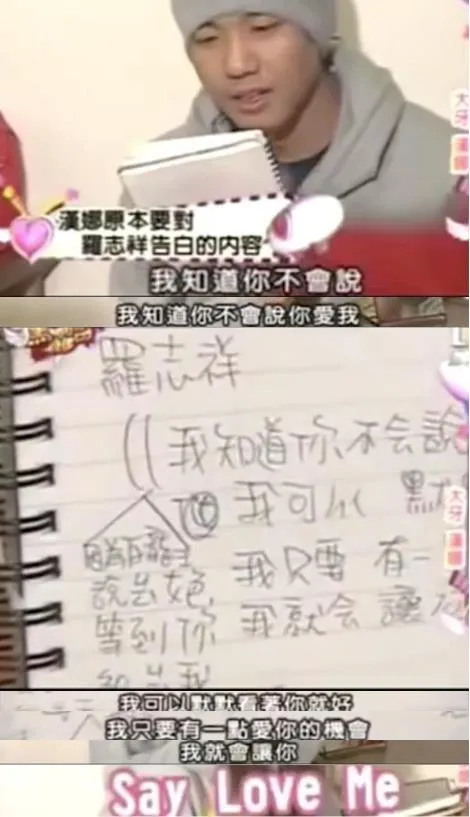 大牙 漢娜
漢娜原本要對
羅志祥告白的內容
我知道你不會說
我知道你不會說你愛我
羅志祥
我知道你不会說
我可以 默
我只要 有一
說出女色
等到你 我就会 讓
大牙 漢娜
我可以默默看著你就好
我只要有一點愛你的機會
我就會讓你
Say Love Me